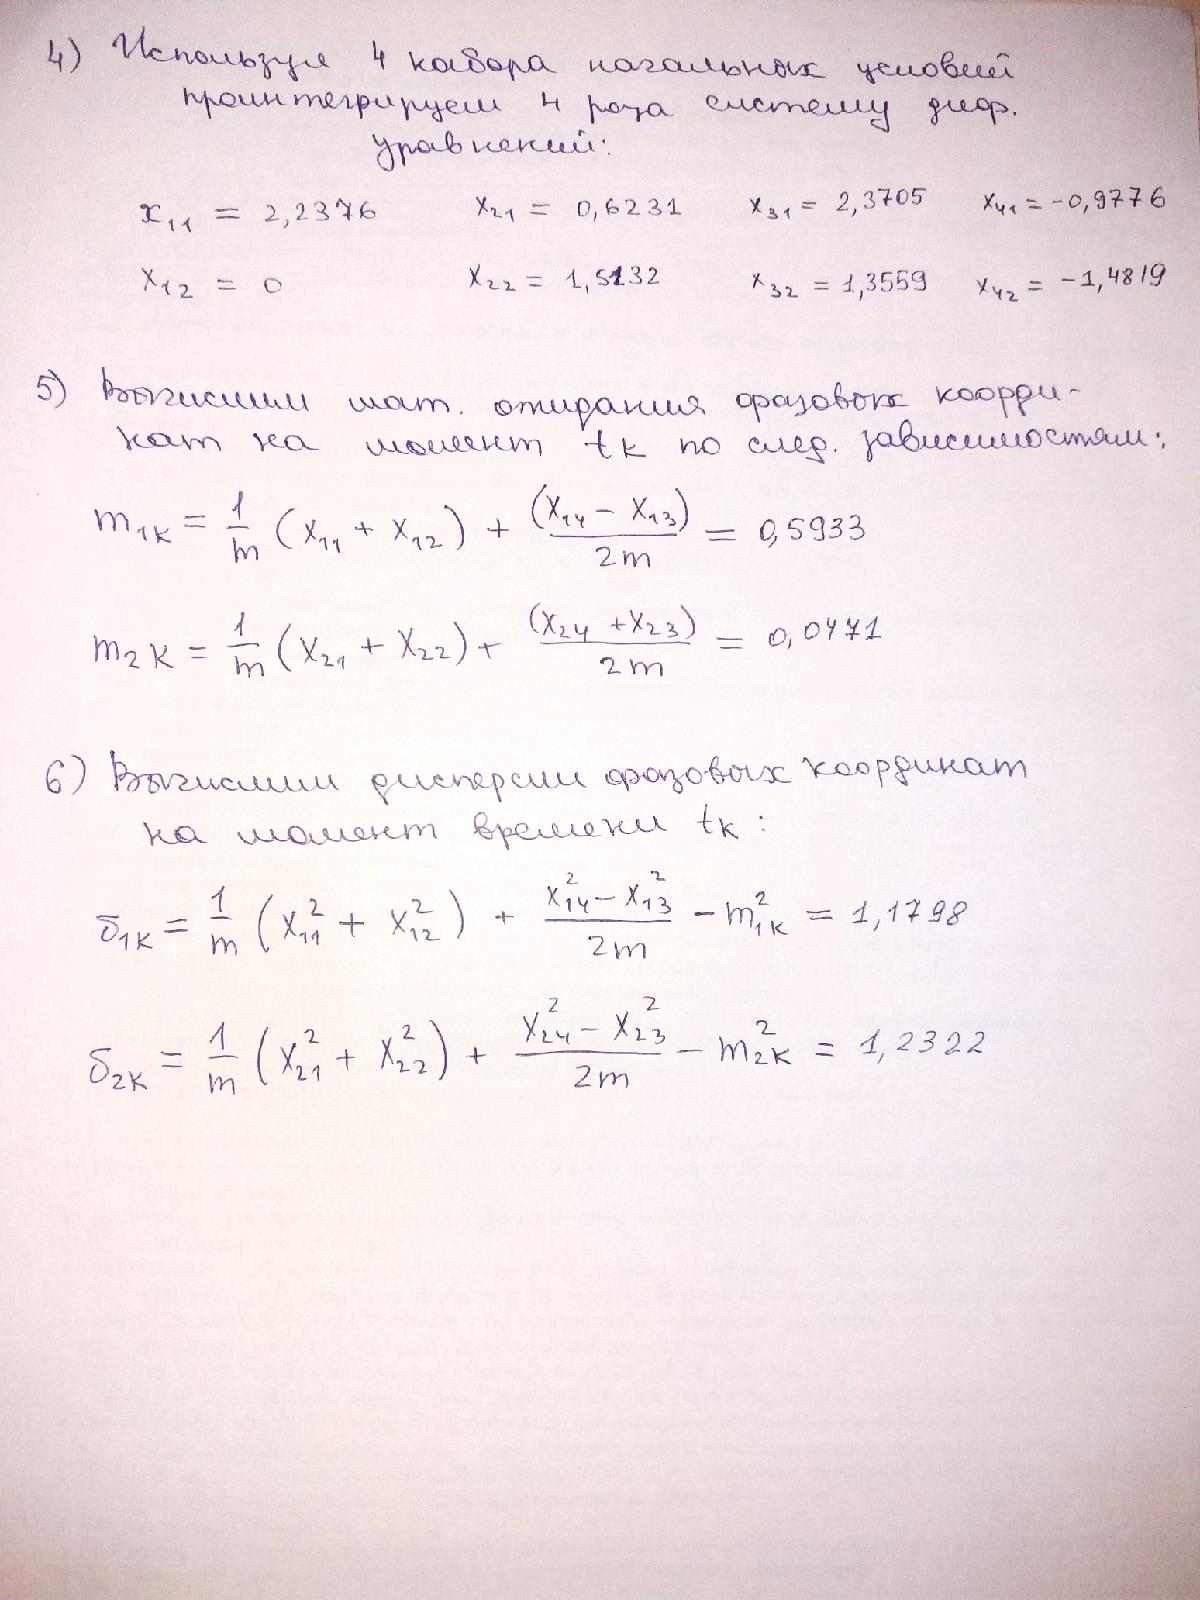 4) Используя 4 набора начальных условий
проинтегрируем 4 раза систему диф.
уравнений:
x₁₁ = 2,2376 x₂₁ = 0,6231 x₃₁ = 2,3705 x₄₁ = -0,9776
x₁₂ = 0 x₂₂ = 1,5132 x₃₂ = 1,3559 x₄₂ = -1,4819
5) Вычислим мат. ожидания фазовых коорди-
нат на момент tк по след. зависимостям:
m₁к = 1/m (x₁₁ + x₁₂) + (x₁₄ - x₁₃)/2m = 0,5933
m₂к = 1/m (x₂₁ + x₂₂) + (x₂₄ + x₂₃)/2m = 0,0471
6) Вычислим дисперсии фазовых координат
на момент времени tк:
б₁к = 1/m (x₁₁² + x₁₂²) + (x₁₄² - x₁₃²)/2m - m₁к² = 1,1798
б₂к = 1/m (x₂₁² + x₂₂²) + (x₂₄² - x₂₃²)/2m - m₂к² = 1,2322